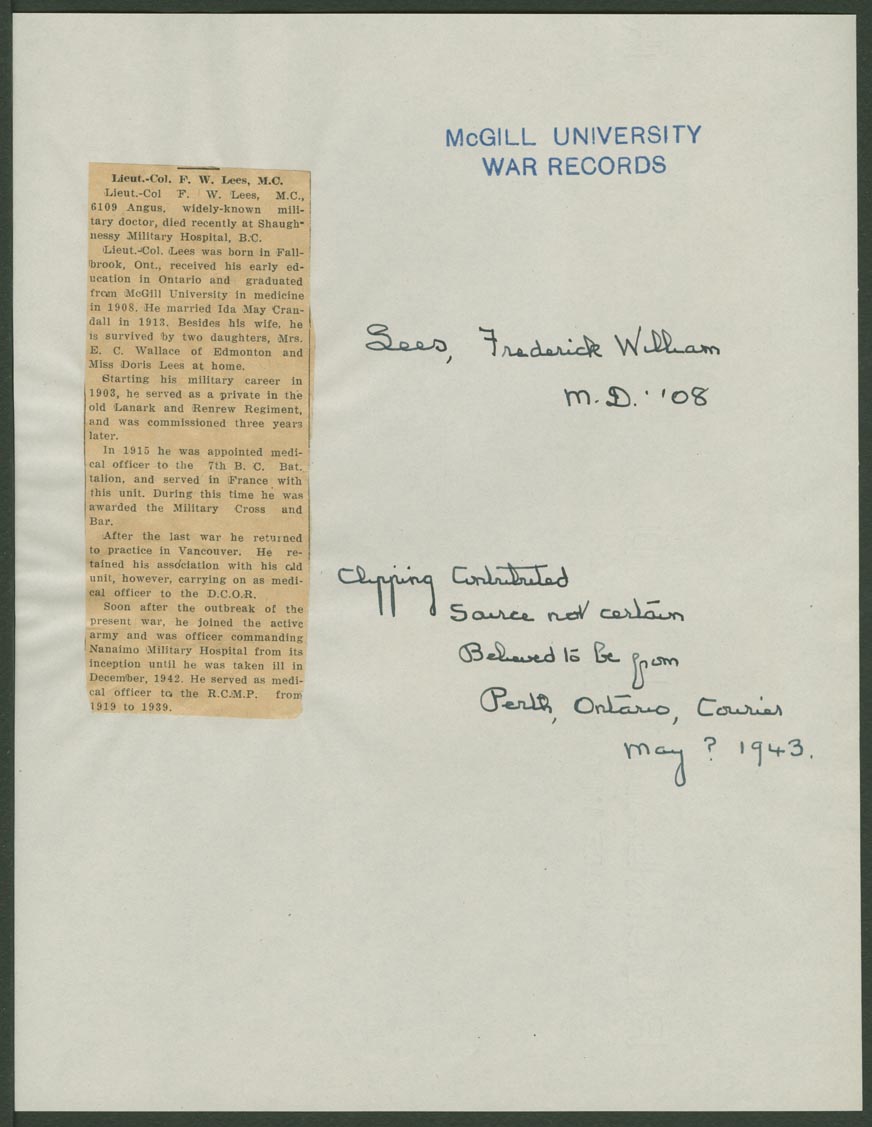 McGILL UNIVERSITY
WAR RECORDS
Lieut.-Col. F. W. Lees, M.C.
Lieut.-Col F. W. Lees, M.C.,
6109 Angus, widely-known mili-
tary doctor, died recently at Shaugh-
nessy Military Hospital, B.C.
Lieut.-Col. Lees was born in Fall-
brook, Ont., received his early ed-
ucation in Ontario and graduated
from McGill University in medicine
in 1908. He married Ida May Cran-
dall in 1913. Besides his wife, he
is survived by two daughters, Mrs.
E. C. Wallace of Edmonton and
Miss Doris Lees at home.
Starting his military career in
1903, he served as a private in the
old Lanark and Renrew Regiment,
and was commissioned three years
later.
In 1915 he was appointed medi-
cal officer to the 7th B. C. Bat.
talion, and served in France with
this unit. During this time he was
awarded the Military Cross and
Bar.
After the last war he returned
to practice in Vancouver. He re-
tained his association with his old
unit, however, carrying on as medi-
cal officer to the D.C.O.R.
Soon after the outbreak of the
present war, he joined the active
army and was officer commanding
Nanaimo Military Hospital from its
inception until he was taken ill in
December, 1942. He served as medi-
cal officer to the R.C.M.P. from
1919 to 1939.
Lees, Frederick William
M.D. '08
Clipping Contributed
Source not certain
Believed to be from
Perth, Ontario, Courier
May ? 1943.